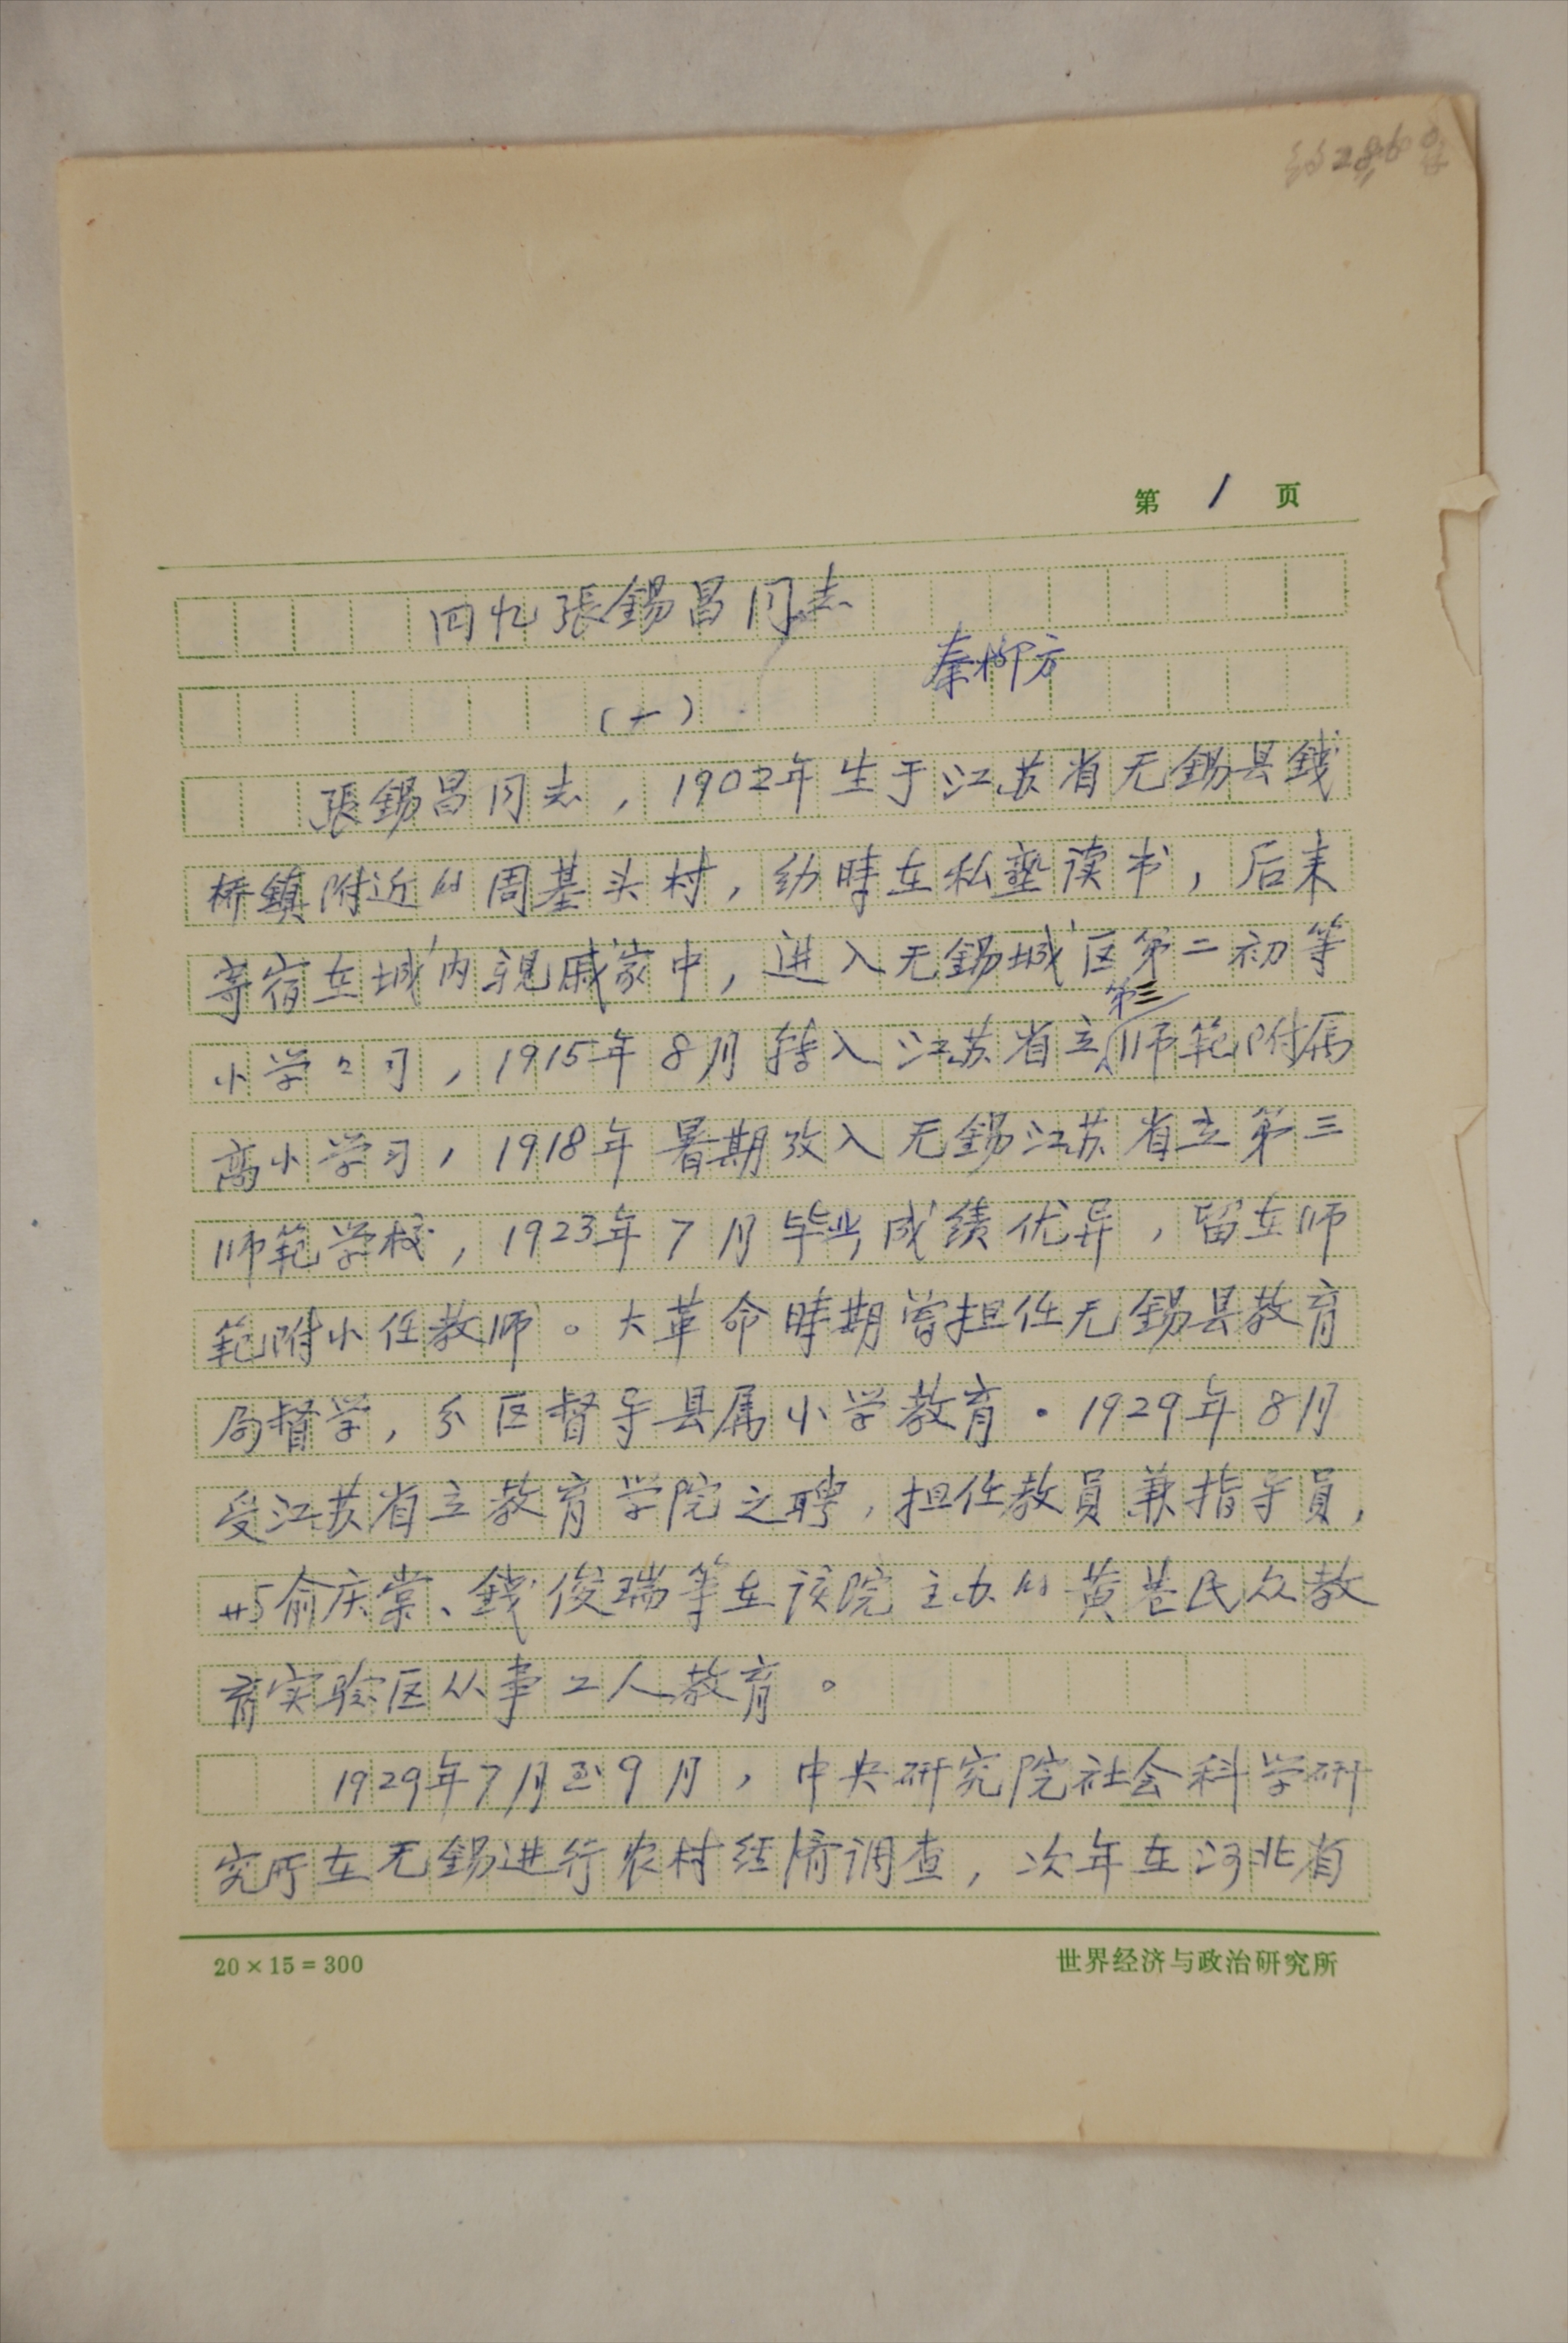 2860
第 1 页
回忆張錫昌同志
秦柳方
(一)
張錫昌同志，1902年生于江苏省无錫县錢
桥鎮附近的周基头村，幼時在私塾读书，后来
寄宿在城内親戚家中，进入无錫城区第二初等
第三
小学学习，1915年8月转入江苏省立师範附属
高小学习，1918年暑期攷入无錫江苏省立第三
师範学校，1923年7月毕业，成绩优异，留在师
範附小任教师。大革命時期曾担任无錫县教育
局督学，分区督导县属小学教育。1929年8月
受江苏省立教育学院之聘，担任教員兼指导員，
与俞庆棠、錢俊瑞等在该院主办的黄巷民众教
育实验区从事工人教育。
1929年7月至9月，中央研究院社会科学研
究所在无錫进行农村经济调查，次年在河北省
20×15=300
世界经济与政治研究所